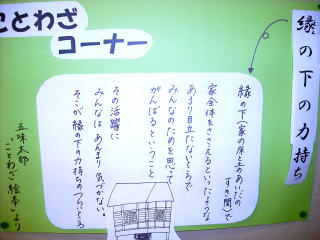 ことわざ
コーナー
縁の下の力持ち
縁の下(家の床と土のあいだのすき間)で
家全体をささえるといったような
あまり目立たないところで
みんなのためを思って
がんばるということ
その活躍に
みんなはあんまり気づかない。
そこが縁の下の力持ちのつらいところ
五味太郎
「ことわざ絵本」より